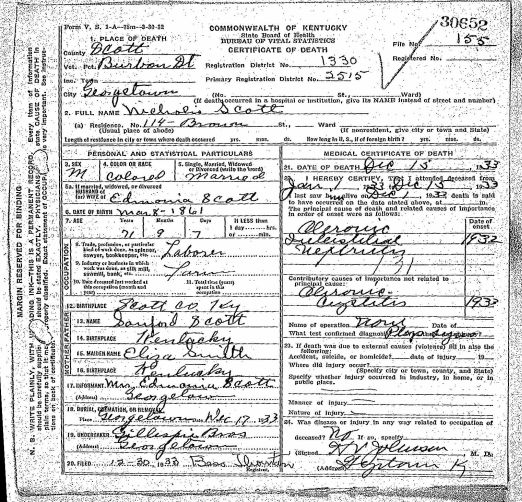 Form V. S. 1-A
30652
COMMONWEALTH OF KENTUCKY
State Board of Health
BUREAU OF VITAL STATISTICS
CERTIFICATE OF DEATH
File No. 155
Registered No.
1. PLACE OF DEATH
County Scott
Vot. Pct.
Registration District No. 1330
Inc. Town
Primary Registration District No. 2515
City Georgetown (No. St., Ward)
(If death occurred in a hospital or institution, give its NAME instead of street and number)
2. FULL NAME Scott
(a) Residence, No. 114 St., Ward
(Usual place of abode) (If nonresident, give city or town and State)
Length of residence in city or town where death occurred yrs. mos. ds. How long in U. S., if of foreign birth? yrs. mos. ds.
MARGIN RESERVED FOR BINDING
PERSONAL AND STATISTICAL PARTICULARS
3. SEX M
4. COLOR OR RACE Colored
5. Single, Married, Widowed or Divorced (write the word) Married
5a. If married, widowed, or divorced
HUSBAND of
(or) WIFE of Edmonia Scott
6. DATE OF BIRTH Mar 8- 1861
7. AGE Years Months Days If LESS than
1 day hrs.
or min.
71 9 7
OCCUPATION
8. Trade, profession, or particular kind of work done, as spinner, sawyer, bookkeeper, etc. Laborer
9. Industry or business in which work was done, as silk mill, sawmill, bank, etc. Farm
10. Date deceased last worked at this occupation (month and year)
11. Total time (years) spent in this occupation
12. BIRTHPLACE Scott Co Ky
FATHER
13. NAME Sanford Scott
14. BIRTHPLACE Kentucky
MOTHER
15. MAIDEN NAME Eliza Smith
16. BIRTHPLACE Kentucky
17. INFORMANT Mrs Edmonia Scott
(Address) Georgetown
18. BURIAL, CREMATION, OR REMOVAL
Place Georgetown Dec 17, 1933
19. UNDERTAKER Gillespie Bros
(Address) Georgetown
20. FILED 12-20 1933
Registrar.
MEDICAL CERTIFICATE OF DEATH
21. DATE OF DEATH Dec 15 1933
22. I HEREBY CERTIFY, That I attended deceased from
Jan 1 1933 Dec 15, 1933
I last saw alive on Dec 1933 death is said
to have occurred on the date stated above, at m.
The principal cause of death and related causes of importance in order of onset were as follows:
Date of onset
Chronic
Interstitial 1932
Nephritis
Contributory causes of importance not related to principal cause:
Chronic
Cystitis 1933
Name of operation None Date of
What test confirmed diagnosis?
23. If death was due to external causes (violence) fill in also the following:
Accident, suicide, or homicide? date of injury 19
Where did injury occur?
(Specify city or town, county, and State)
Specify whether injury occurred in industry, in home, or in public place.
Manner of injury
Nature of injury
24. Was disease or injury in any way related to occupation of deceased? No If so, specify
(Signed) Johnson M. D.
(Address) Ky